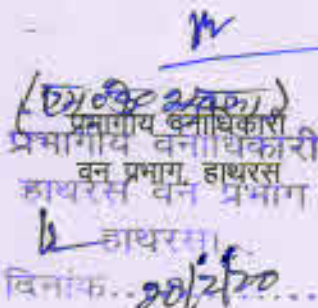 प्रभागीय वनाधिकारी
प्रभागीय वनाधिकारी
वन प्रभाग, हाथरस
हाथरस वन प्रभाग
हाथरस।
दिनांक..28/2/20......